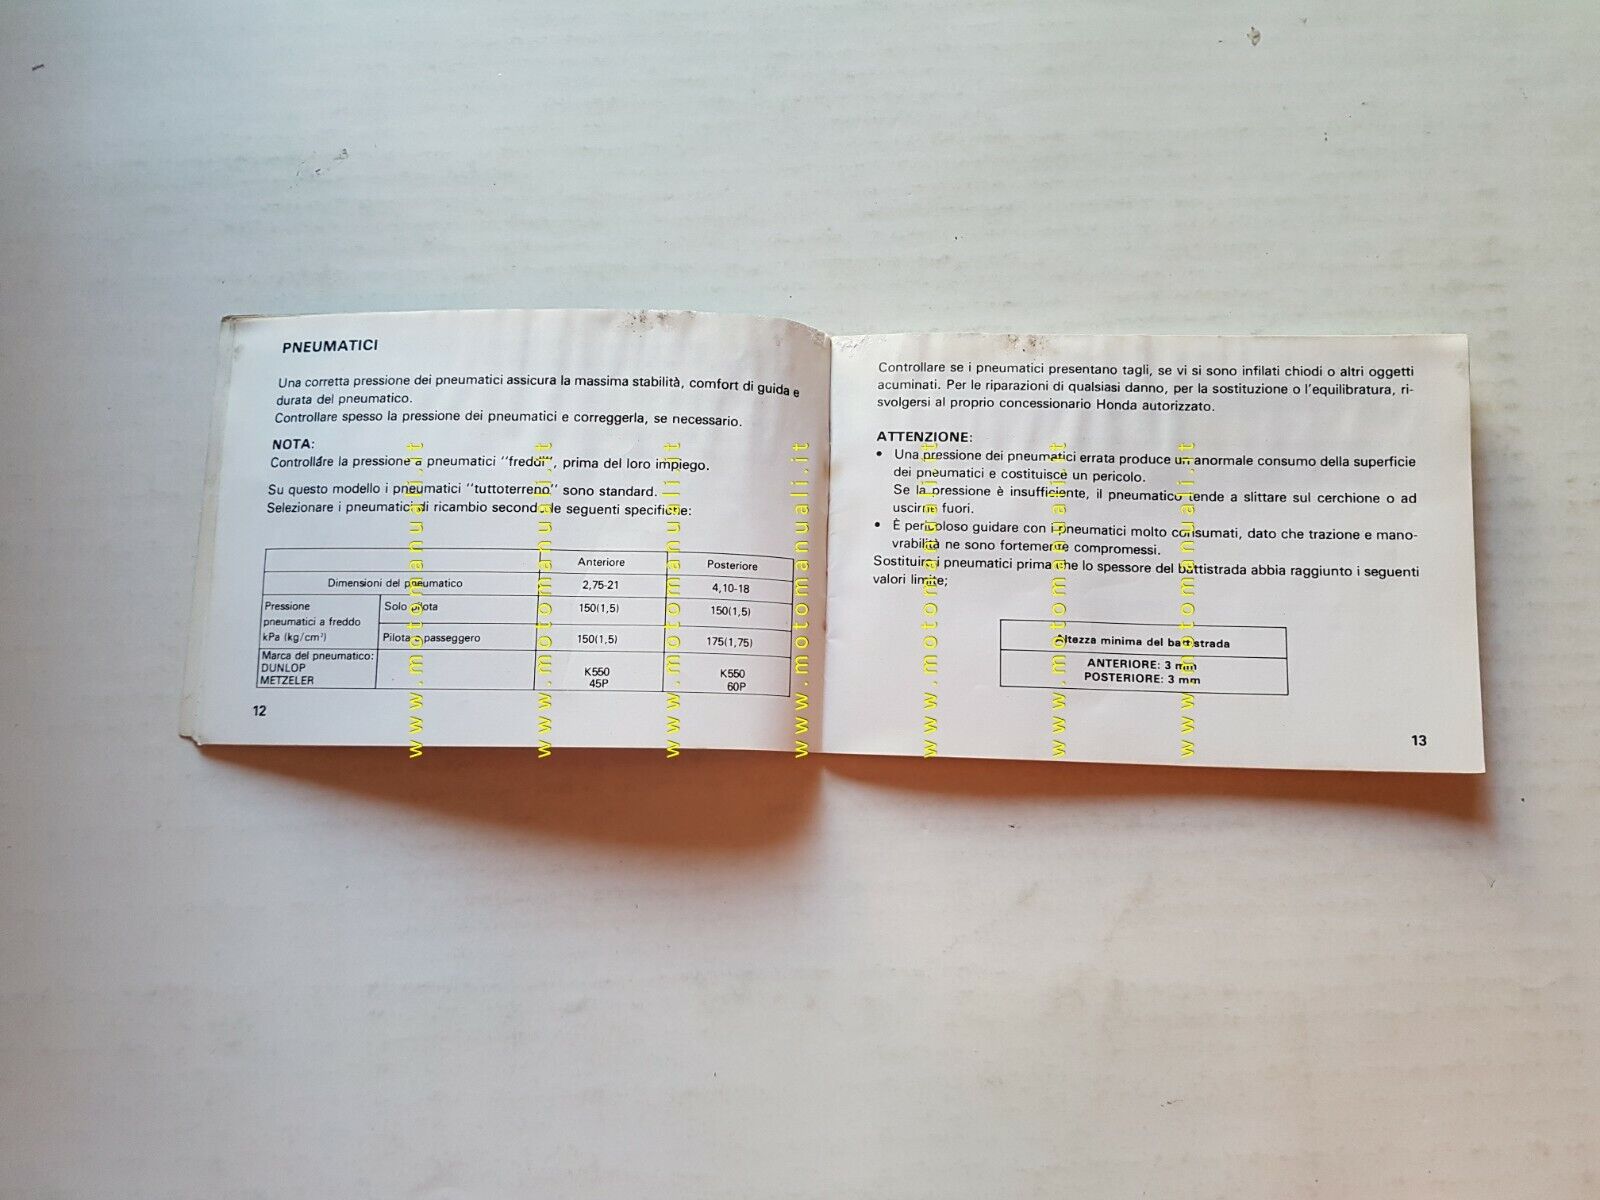 PNEUMATICI
Una corretta pressione dei pneumatici assicura la massima stabilità, comfort di guida e
durata del pneumatico.
Controllare spesso la pressione dei pneumatici e correggerla, se necessario.
NOTA:
Controllare la pressione a pneumatici "freddi", prima del loro impiego.
Su questo modello i pneumatici "tuttoterreno" sono standard.
Selezionare i pneumatici di ricambio secondo le seguenti specifiche:
Anteriore Posteriore
Dimensioni del pneumatico 2,75-21 4,10-18
Pressione
pneumatici a freddo
kPa (kg/cm²)
Solo pilota 150(1,5) 150(1,5)
Pilota e passeggero 150(1,5) 175(1,75)
Marca del pneumatico:
DUNLOP K550 K550
METZELER 45P 60P
12
Controllare se i pneumatici presentano tagli, se vi si sono infilati chiodi o altri oggetti
acuminati. Per le riparazioni di qualsiasi danno, per la sostituzione o l'equilibratura, ri-
svolgersi al proprio concessionario Honda autorizzato.
ATTENZIONE:
• Una pressione dei pneumatici errata produce un anormale consumo della superficie
dei pneumatici e costituisce un pericolo.
Se la pressione è insufficiente, il pneumatico tende a slittare sul cerchione o ad
uscirne fuori.
• È pericoloso guidare con i pneumatici molto consumati, dato che trazione e mano-
vrabilità ne sono fortemente compromessi.
Sostituire i pneumatici prima che lo spessore del battistrada abbia raggiunto i seguenti
valori limite;
Altezza minima del battistrada
ANTERIORE: 3 mm
POSTERIORE: 3 mm
13
www.motomanuali.it
www.motomanuali.it
www.motomanuali.it
www.motomanuali.it
www.motomanuali.it
www.motomanuali.it
www.motomanuali.it